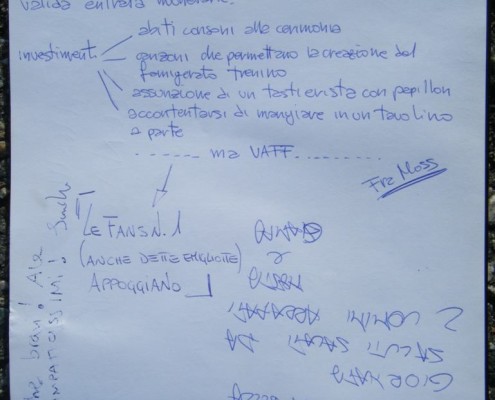 valida entrata
investimenti
abiti consoni alla cerimonia
canzoni che permettano la creazione del
famigerato trenino
assunzione di un tastierista con papillon
accontentarsi di mangiare in un tavolino
a parte
........ ma VAFF..........
Fra Moss
LE FANS N. 1
(ANCHE DETTE
APPOGGIANO
bravi!
GIORNATA
SALUTI SALATI DA
2 UOMINI ARRAPATI